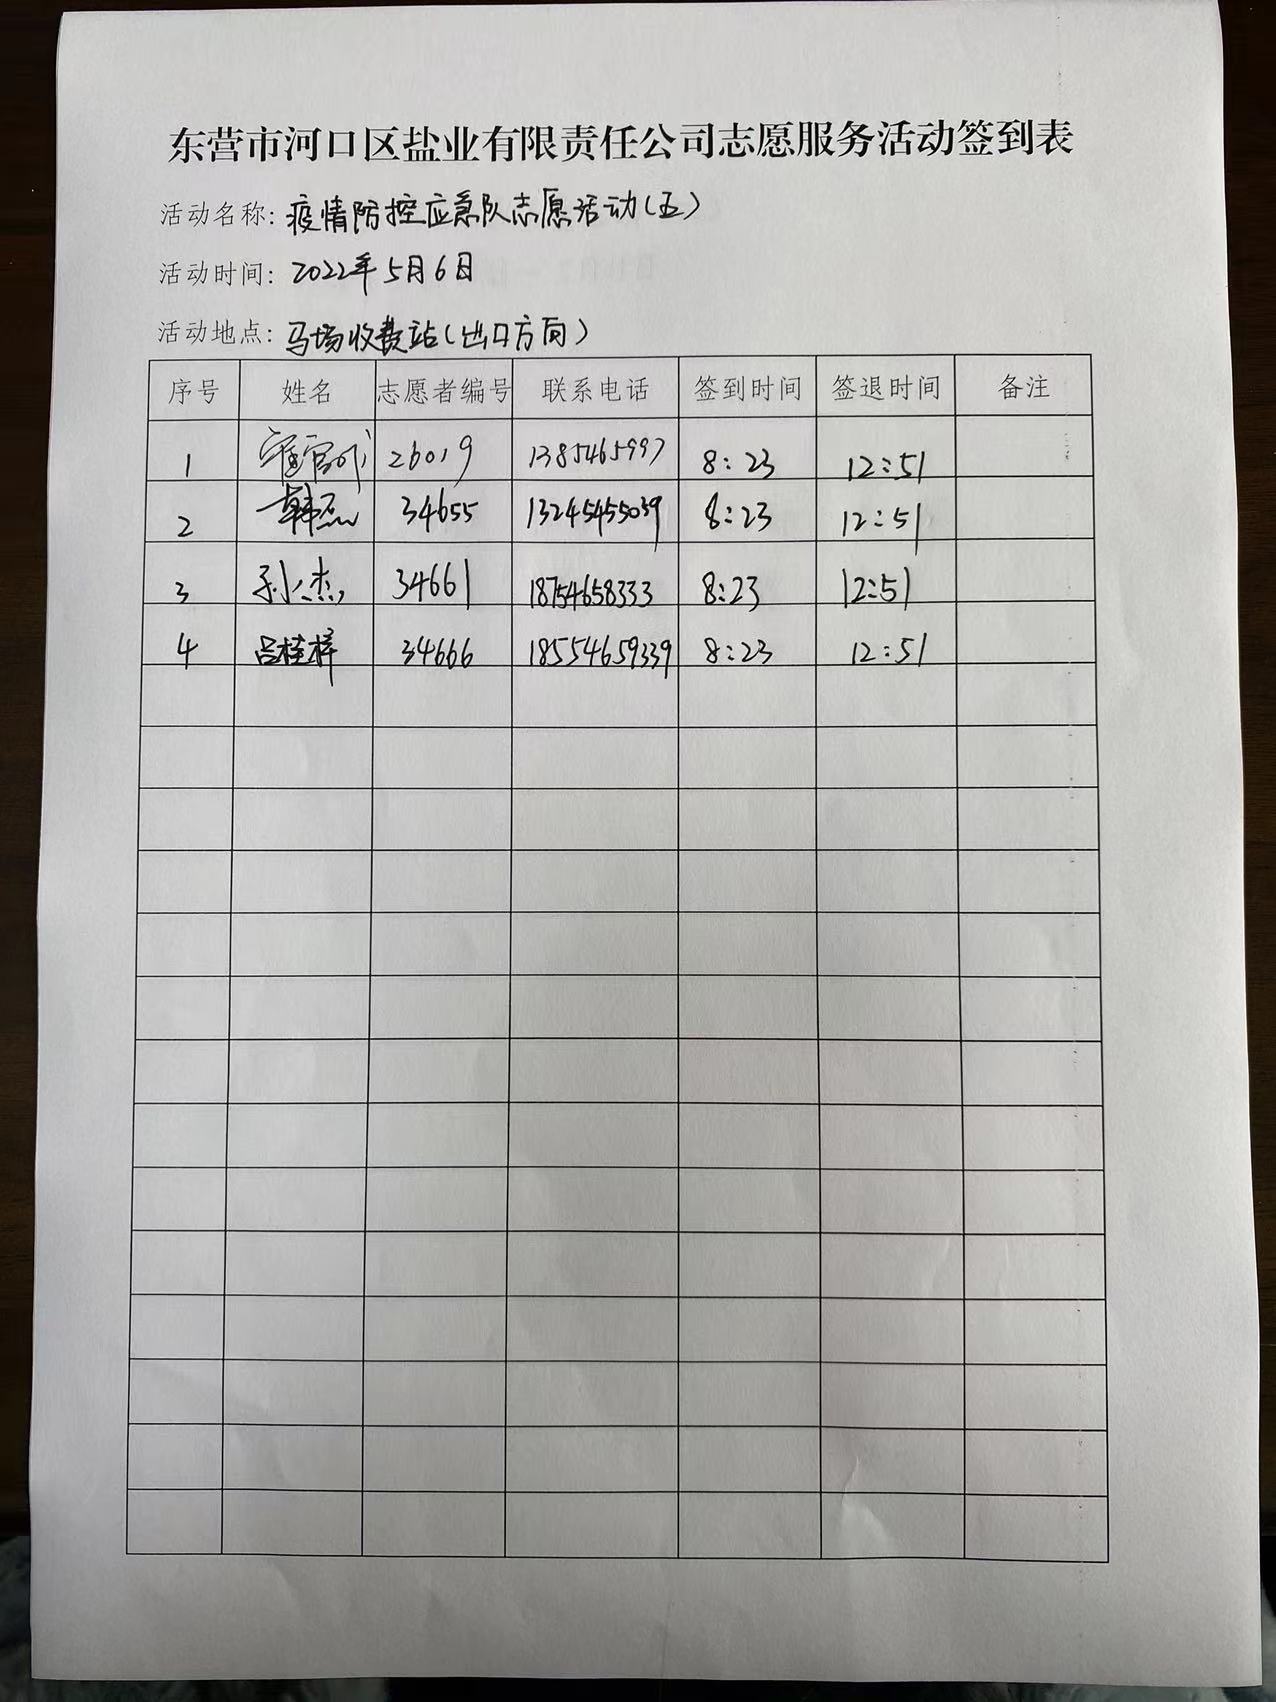 东营市河口区盐业有限责任公司志愿服务活动签到表
活动名称: 疫情防控应急队志愿活动(五)
活动时间: 2022年5月6日
活动地点: 马场收费站(出口方向)
序号 姓名 志愿者编号 联系电话 签到时间 签退时间 备注
1 26019 1385465997 8:23 12:51
2 韩磊 34655 13245455039 8:23 12:51
3 孙杰 34661 18754658333 8:23 12:51
4 吕桂梓 34666 18554659339 8:23 12:51